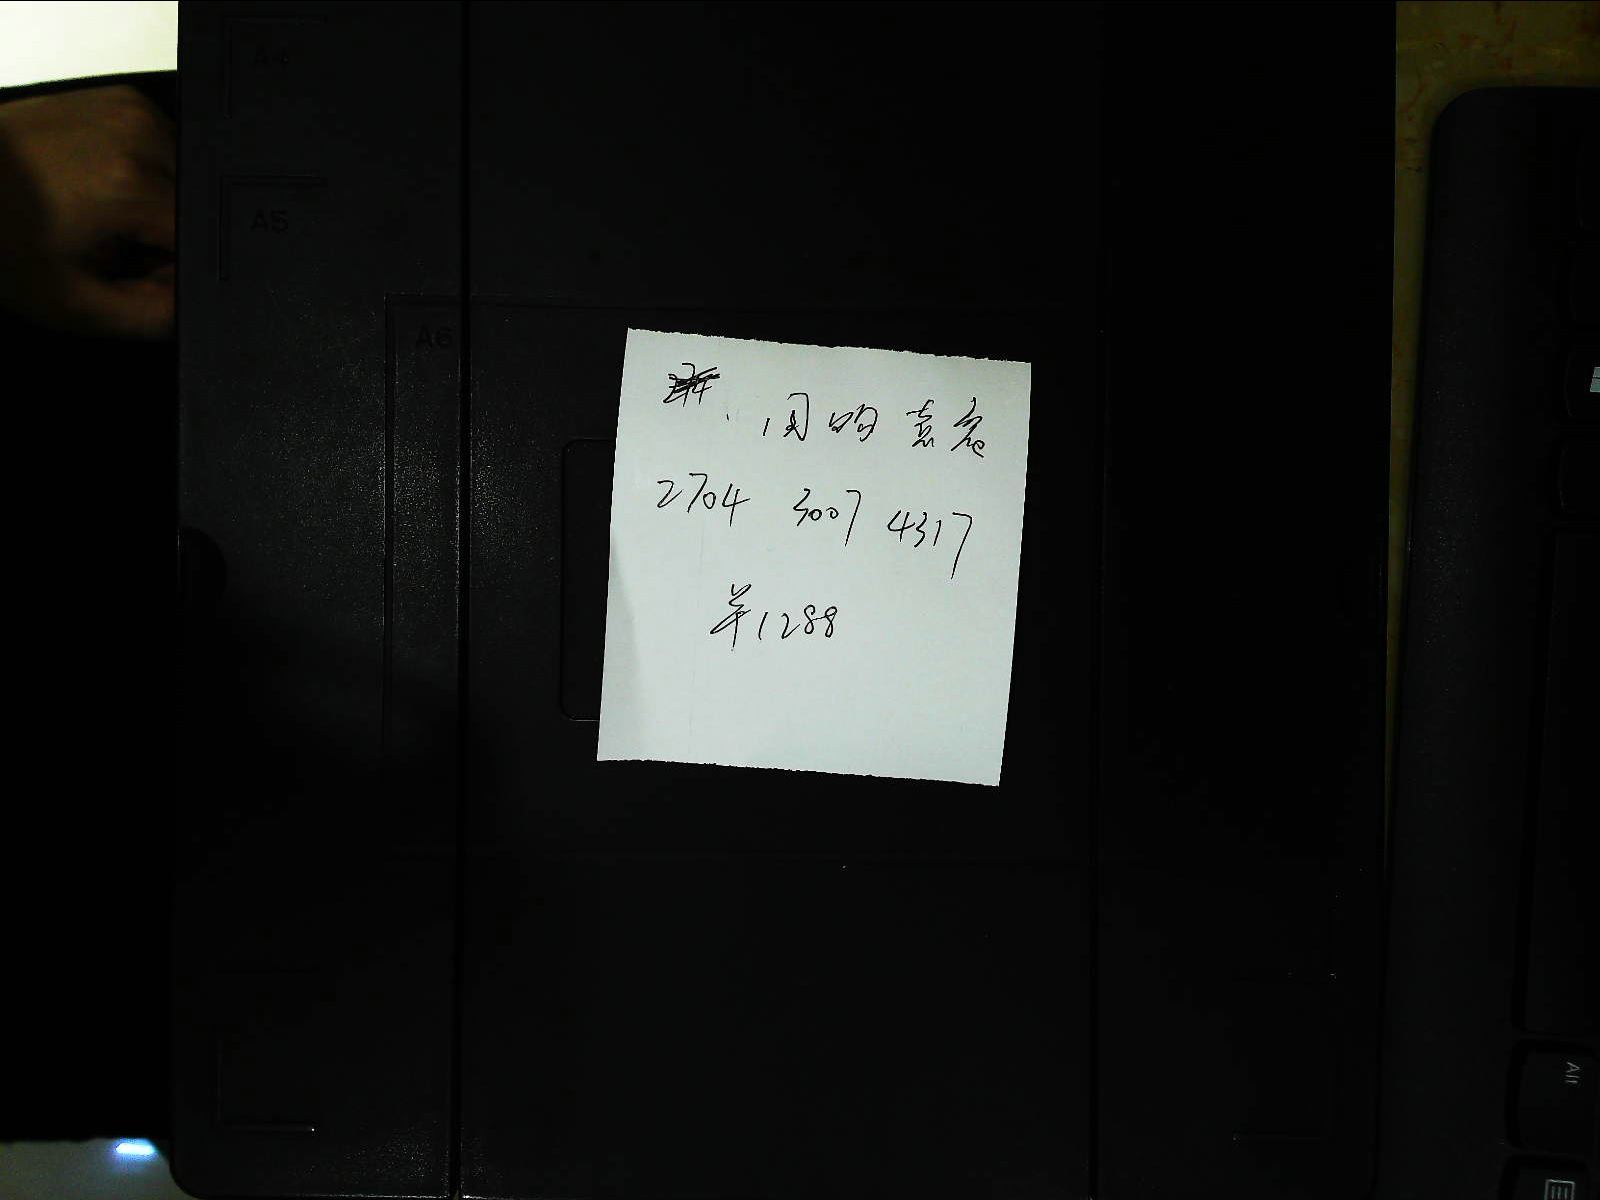 A4
A5
A6
周昀
2704 3007 4317
¥1288
Alt